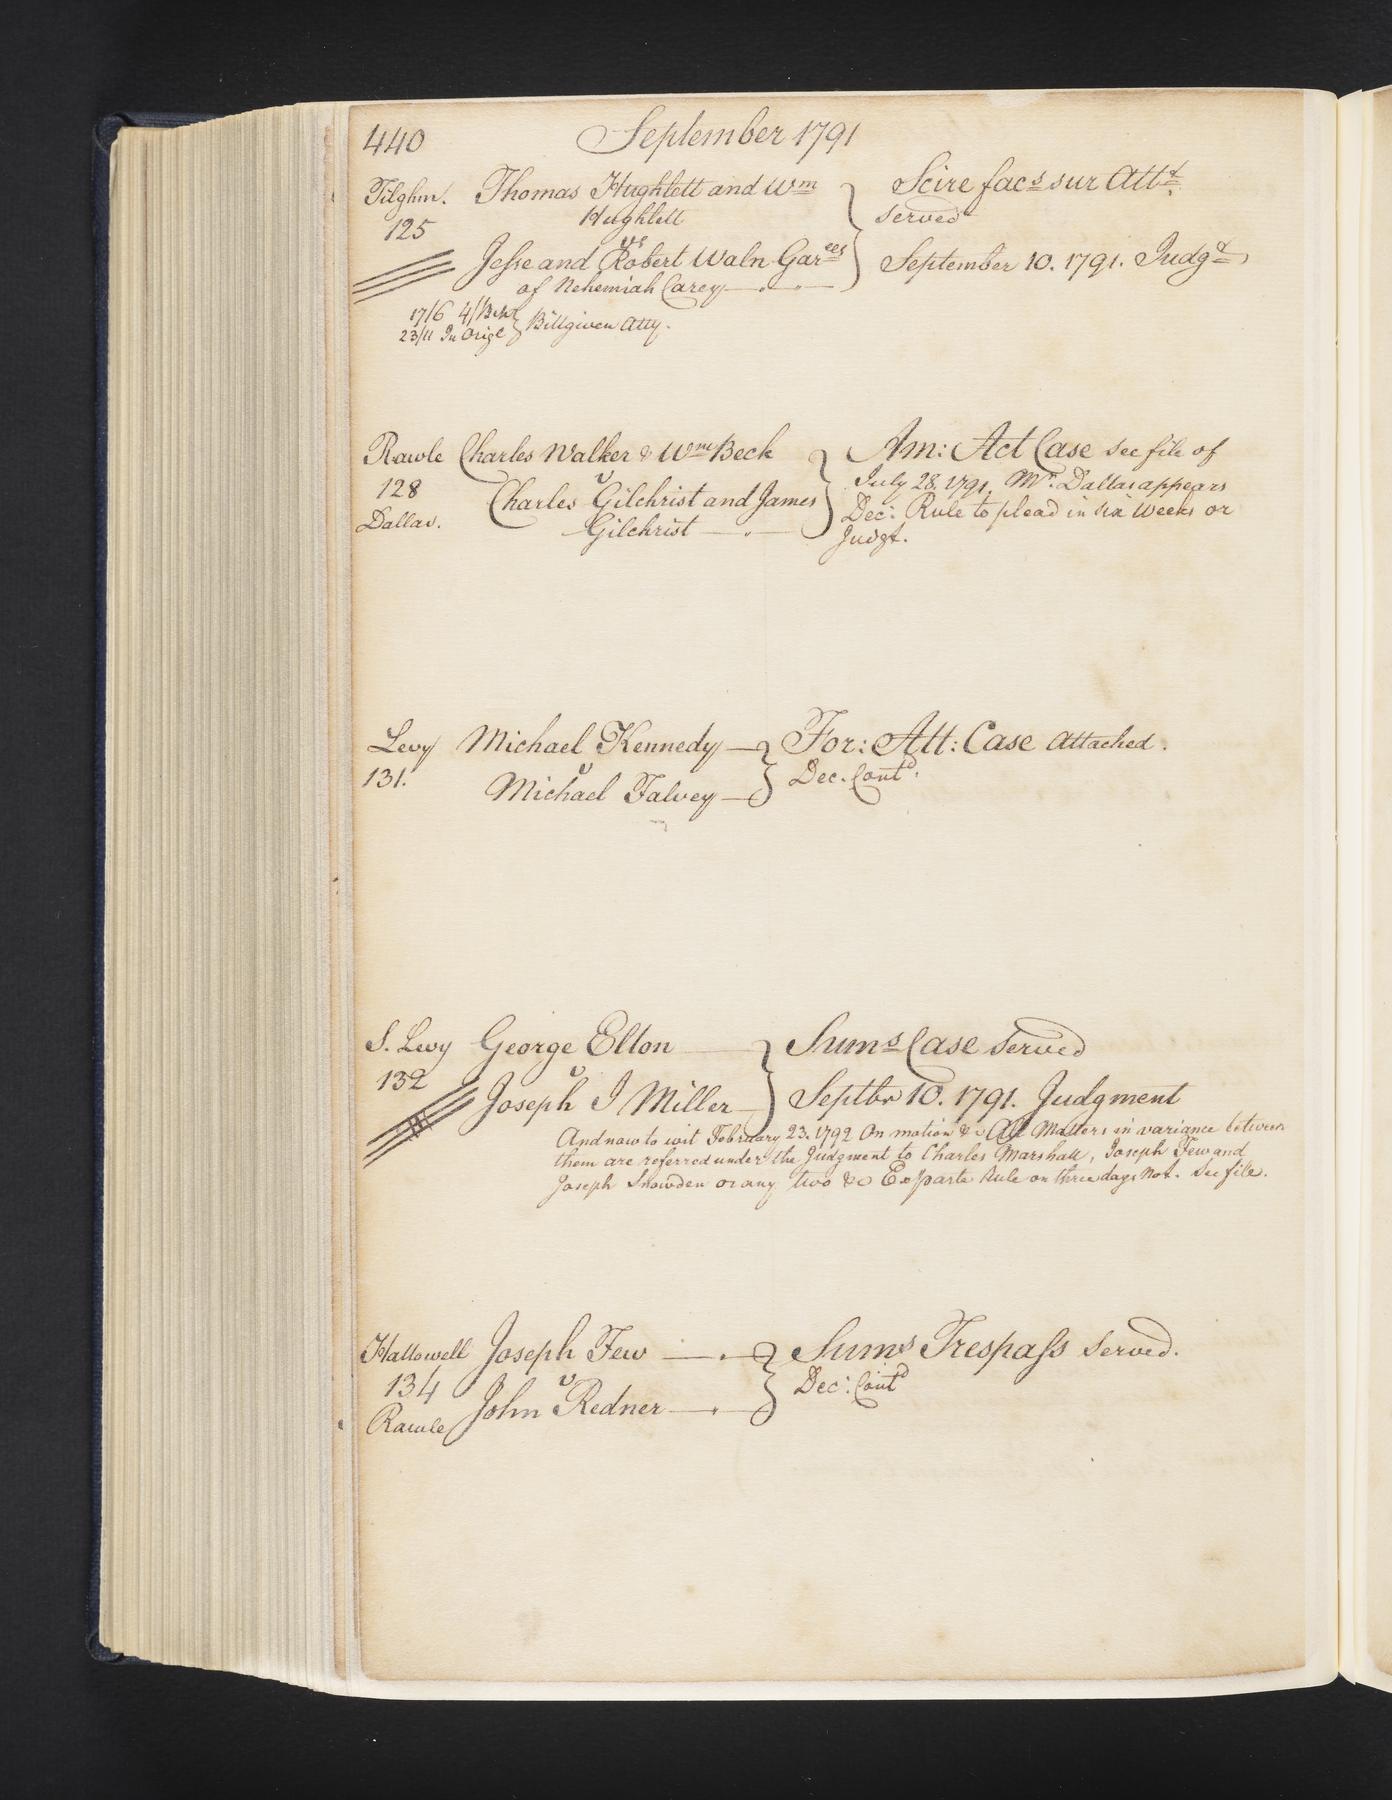 440 September 1791
Tilghm. Thomas Hughlett and Wm Scire facs sur Attt.
125 Hughlett served
vs
Jesse and Robert Waln Garees September 10. 1791. Judgt
of Nehemiah Carey
17/6 4/ Billgiven Atty.
23/11 In Origl
Rawle Charles Walker & Wm Beck Am: Act Case see file of
128 v July 28. 1791. Mr. Dallas appears
Charles Gilchrist and James Dec: Rule to plead in six weeks or
Dallas. Gilchrist Judgt.
Levy Michael Kennedy For: Att: Case Attached.
131. v Dec. Contd.
Michael Falvey
S. Levy George Elton Sums Case served
132 v
Joseph I Miller Septbr 10. 1791. Judgment
And now to wit February 23. 1792 On motion &c All Matters in variance between
them are referred under the Judgment to Charles Marshall, Joseph Few and
Joseph Snowden or any two &c Exparte Rule on three days Not. See file.
Hallowell Joseph Few Sums Trespass Served.
134 v Dec: Contd
Rawle John Redner